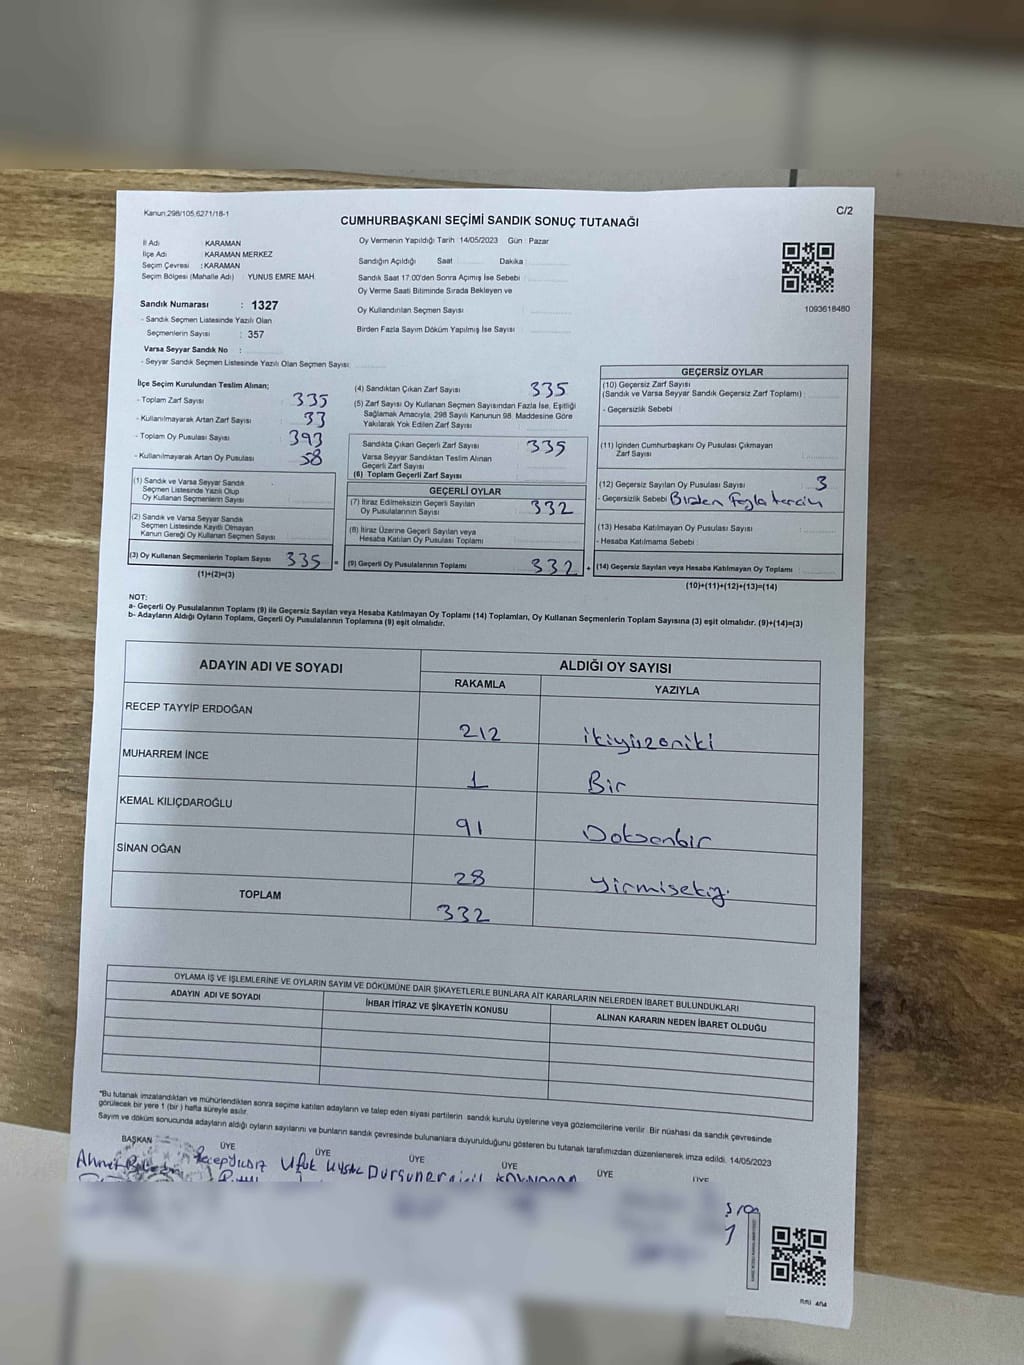 Kanun:298/105,6271/18-1
C/2
CUMHURBAŞKANI SEÇİMİ SANDIK SONUÇ TUTANAĞI
İl Adı KARAMAN
İlçe Adı : KARAMAN MERKEZ
Seçim Çevresi : KARAMAN
Seçim Bölgesi (Mahalle Adı) : YUNUS EMRE MAH.
Oy Vermenin Yapıldığı Tarih :14/05/2023 Gün : Pazar
Sandığın Açıldığı Saat Dakika :
Sandık Saat 17:00'den Sonra Açımış İse Sebebi :
Oy Verme Saati Bitiminde Sırada Bekleyen ve
Oy Kullandırılan Seçmen Sayısı :
Birden Fazla Sayım Döküm Yapılmış İse Sayısı :
1093618480
Sandık Numarası : 1327
- Sandık Seçmen Listesinde Yazılı Olan
Seçmenlerin Sayısı : 357
Varsa Seyyar Sandık No :
- Seyyar Sandık Seçmen Listesinde Yazılı Olan Seçmen Sayısı:
İlçe Seçim Kurulundan Teslim Alınan;
- Toplam Zarf Sayısı : 335
- Kullanılmayarak Artan Zarf Sayısı : 33
- Toplam Oy Pusulası Sayısı : 393
- Kullanılmayarak Artan Oy Pusulası : 58
(1) Sandık ve Varsa Seyyar Sandık
Seçmen Listesinde Yazılı Olup
Oy Kullanan Seçmenlerin Sayısı :
(2) Sandık ve Varsa Seyyar Sandık
Seçmen Listesinde Kayıtlı Olmayan
Kanun Gereği Oy Kullanan Seçmen Sayısı :
(3) Oy Kullanan Seçmenlerin Toplam Sayısı : 335 =
(1)+(2)=(3)
(4) Sandıktan Çıkan Zarf Sayısı : 335
(5) Zarf Sayısı Oy Kullanan Seçmen Sayısından Fazla İse, Eşitliği
Sağlamak Amacıyla, 298 Sayılı Kanunun 98. Maddesine Göre
Yakılarak Yok Edilen Zarf Sayısı :
Sandıkta Çıkan Geçerli Zarf Sayısı : 335
Varsa Seyyar Sandıktan Teslim Alınan
Geçerli Zarf Sayısı :
(6) Toplam Geçerli Zarf Sayısı :
GEÇERLİ OYLAR
(7) İtiraz Edilmeksizin Geçerli Sayılan
Oy Pusulalarının Sayısı : 332
(8) İtiraz Üzerine Geçerli Sayılan veya
Hesaba Katılan Oy Pusulası Toplamı :
(9) Geçerli Oy Pusulalarının Toplamı : 332 +
GEÇERSİZ OYLAR
(10) Geçersiz Zarf Sayısı
(Sandık ve Varsa Seyyar Sandık Geçersiz Zarf Toplamı) :
- Geçersizlik Sebebi :
(11) İçinden Cumhurbaşkanı Oy Pusulası Çıkmayan
Zarf Sayısı :
(12) Geçersiz Sayılan Oy Pusulası Sayısı : 3
- Geçersizlik Sebebi : Birden fazla tercih
(13) Hesaba Katılmayan Oy Pusulası Sayısı :
- Hesaba Katılmama Sebebi :
(14) Geçersiz Sayılan veya Hesaba Katılmayan Oy Toplamı :
(10)+(11)+(12)+(13)=(14)
NOT:
a- Geçerli Oy Pusulalarının Toplamı (9) ile Geçersiz Sayılan veya Hesaba Katılmayan Oy Toplamı (14) Toplamları, Oy Kullanan Seçmenlerin Toplam Sayısına (3) eşit olmalıdır. (9)+(14)=(3)
b- Adayların Aldığı Oyların Toplamı, Geçerli Oy Pusulalarının Toplamına (9) eşit olmalıdır.
ADAYIN ADI VE SOYADI ALDIĞI OY SAYISI
RAKAMLA YAZIYLA
RECEP TAYYİP ERDOĞAN 212 ikiyüzoniki
MUHARREM İNCE 1 Bir
KEMAL KILIÇDAROĞLU 91 Doksanbir
SİNAN OĞAN 28 yirmisekiz
TOPLAM 332
OYLAMA İŞ VE İŞLEMLERİNE VE OYLARIN SAYIM VE DÖKÜMÜNE DAİR ŞİKAYETLERLE BUNLARA AİT KARARLARIN NELERDEN İBARET BULUNDUKLARI
ADAYIN ADI VE SOYADI İHBAR İTİRAZ VE ŞİKAYETİN KONUSU ALINAN KARARIN NEDEN İBARET OLDUĞU
*Bu tutanak imzalandıktan ve mühürlendikten sonra seçime katılan adayların ve talep eden siyasi partilerin sandık kurulu üyelerine veya gözlemcilerine verilir. Bir nüshası da sandık çevresinde
görülecek bir yere 1 (bir) hafta süreyle asılır.
Sayım ve döküm sonucunda adayların aldığı oyların sayılarını ve bunların sandık çevresinde bulunanlara duyurulduğunu gösteren bu tutanak tarafımızdan düzenlenerek imza edildi. 14/05/2023
BAŞKAN ÜYE ÜYE ÜYE ÜYE ÜYE ÜYE
Ahmet Recep Yıldız Ufuk Dursun